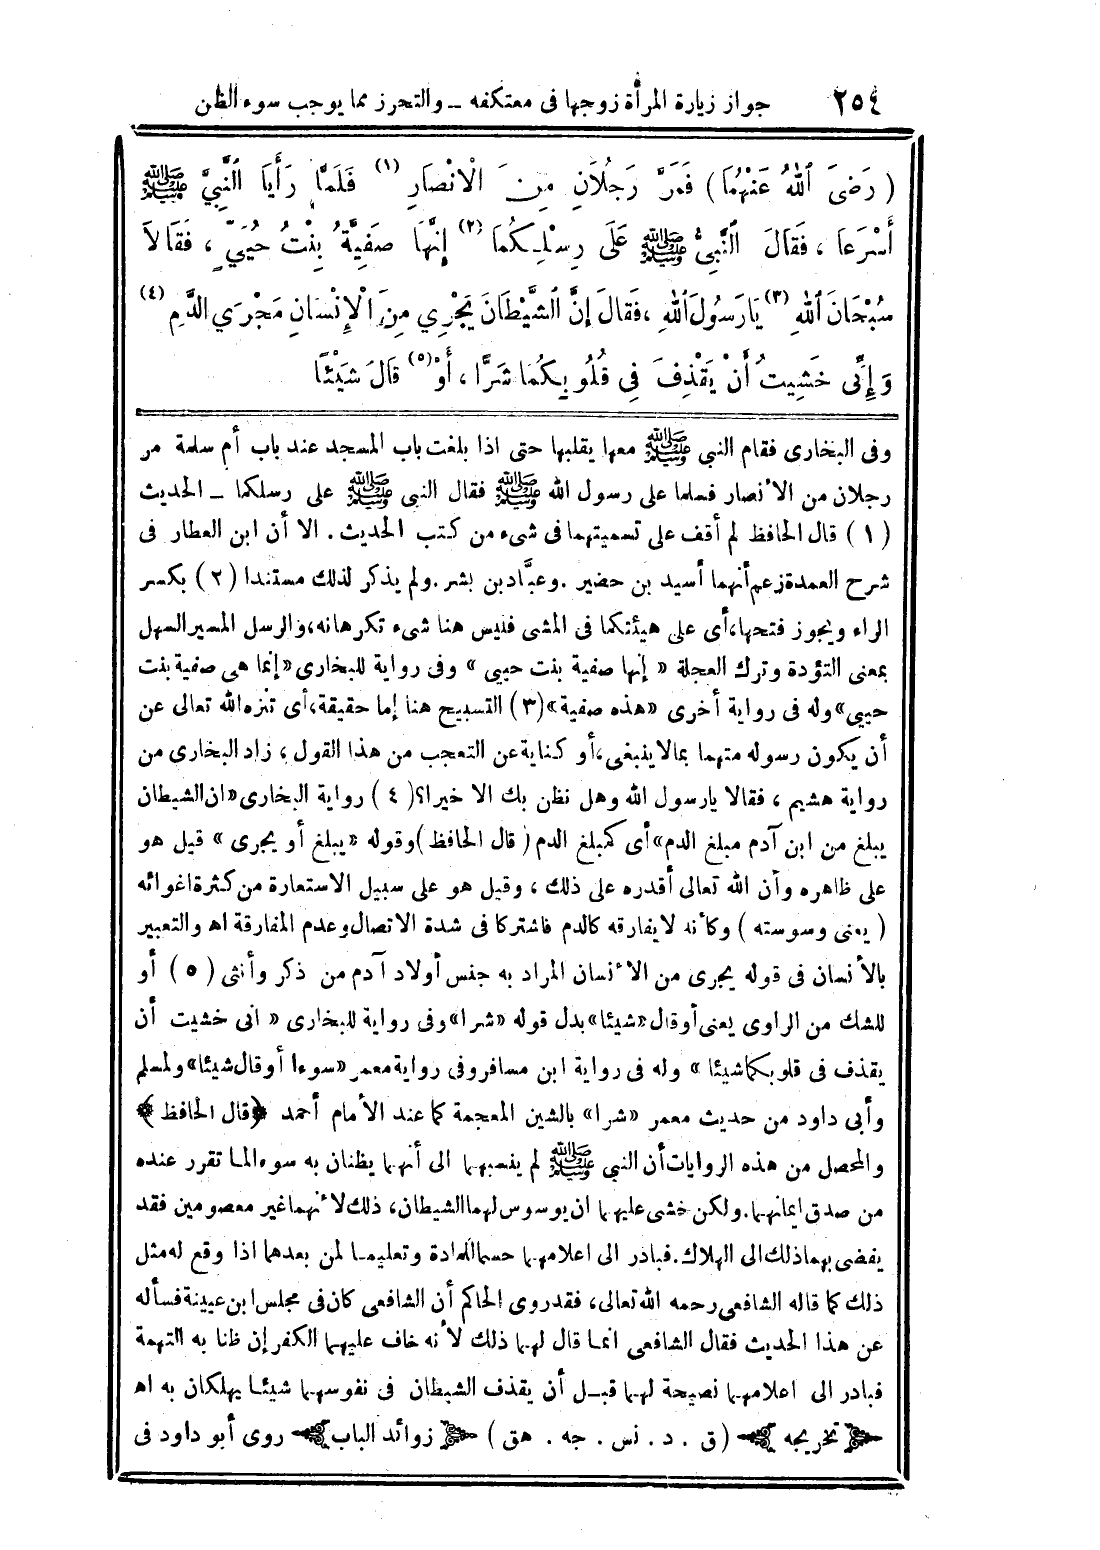 ٢٥٤ جواز زيارة المرأة زوجها فى معتكفه ــ والتحرز مما يوجب سوء الظن
( رَضِىَ ٱللهُ عَنْهُمَا ) فَمَرَّ رَجُلَانِ مِنَ الْأَنْصَارِ (١) فَلَمَّا رَأَيَا ٱلنَّبِيَّ ﷺ
أَسْرَعَا ، فَقَالَ ٱلنَّبِيُّ ﷺ عَلَى رِسْلِكُمَا (٢) إِنَّهَا صَفِيَّةُ بِنْتُ حُيَيٍّ ، فَقَالَا
سُبْحَانَ ٱللهِ (٣) يَارَسُولَ ٱللهِ ، فَقَالَ إِنَّ ٱلشَّيْطَانَ يَجْرِي مِنَ الْإِنْسَانِ مَجْرَي الدَّمِ (٤)
وَإِنِّى خَشِيتُ أَنْ يَقْذِفَ فِى قُلُوبِكُمَا شَرًّا ، أَوْ (٥) قَالَ شَيْئًا
وفى البخارى فقام النبى ﷺ معها يقلبها حتى اذا بلغت باب المسجد عند باب أم سلمة مر
رجلان من الأنصار فسلما على رسول الله ﷺ فقال النبى ﷺ على رسلكما ــ الحديث
( ١ ) قال الحافظ لم أقف على تسميتهما فى شىء من كتب الحديث . الا أن ابن العطار فى
شرح العمدة زعم أنهما أسيد بن حضير . وعبَّاد بن بشر . ولم يذكر لذلك مستندا ( ٢ ) بكسر
الراء ويجوز فتحها ، أى على هيئتكما فى المشى فليس هنا شىء تكرهانه ، والرسل المسير السهل
بمعنى التؤدة وترك العجلة « إنها صفية بنت حيي » وفى رواية للبخارى « إنما هى صفية بنت
حيي » وله فى رواية أخرى « هذه صفية » ( ٣ ) التسبيح هنا إما حقيقة ، أى تنزه الله تعالى عن
أن يكون رسوله متهما بمالا ينبغى ، أو كناية عن التعجب من هذا القول ، زاد البخارى من
رواية هشيم ، فقالا يارسول الله وهل نظن بك الا خيرا؟ ( ٤ ) رواية البخارى « ان الشيطان
يبلغ من ابن آدم مبلغ الدم » أى كمبلغ الدم ( قال الحافظ ) وقوله « يبلغ أو يجرى » قيل هو
على ظاهره وأن الله تعالى أقدره على ذلك ، وقيل هو على سبيل الاستعارة من كثرة اغوائه
( يعنى وسوسته ) وكأنه لا يفارقه كالدم فاشتركا فى شدة الاتصال وعدم المفارقة اه والتعبير
بالأنسان فى قوله يجرى من الأنسان المراد به جنس أولاد آدم من ذكر وأنثى ( ٥ ) أو
للشك من الراوى يعنى أو قال « شيئا » بدل قوله « شرا » وفى رواية للبخارى « انى خشيت أن
يقذف فى قلوبكما شيئا » وله فى رواية ابن مسافر وفى رواية معمر « سوءا أو قال شيئا » ولمسلم
وأبى داود من حديث معمر « شرا » بالشين المعجمة كما عند الأمام أحمد ﴿ قال الحافظ ﴾
والمحصل من هذه الروايات أن النبى ﷺ لم ينسبهما الى أنهما يظنان به سوءا لما تقرر عنده
من صدق ايمانهما . ولكن خشى عليهما ان يوسوس لهما الشيطان ، ذلك لأنهما غير معصومين فقد
يفضى بهما ذلك الى الهلاك . فبادر الى اعلامهما حسما للمادة وتعليما لمن بعدهما اذا وقع له مثل
ذلك كما قاله الشافعى رحمه الله تعالى ، فقد روى الحاكم أن الشافعى كان فى مجلس ابن عيينة فسأله
عن هذا الحديث فقال الشافعى انما قال لهما ذلك لأنه خاف عليهما الكفر إن ظنا به التهمة
فبادر الى اعلامهما نصيحة لهما قبل أن يقذف الشيطان فى نفوسهما شيئا يهلكان به اه
﴿ تخريجه ﴾ ( ق . د . نس . جه . هق ) ﴿ زوائد الباب ﴾ روى أبو داود فى